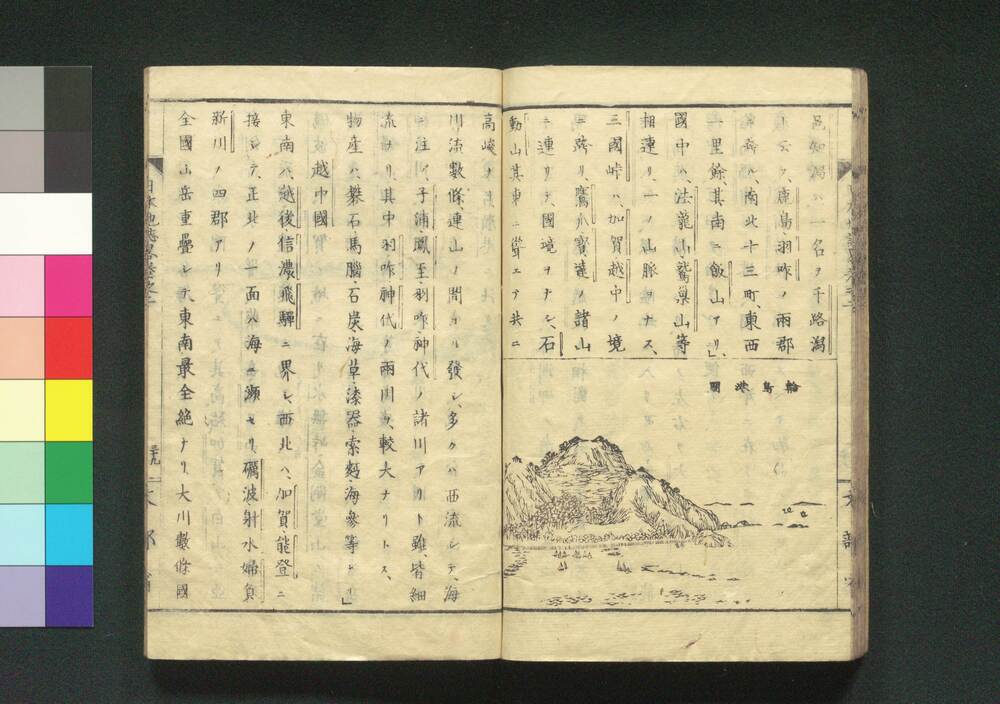 邑知潟ハ一名ヲ千路潟
ト云フ、鹿島、羽咋ノ兩郡
ニ、南北十三町、東西
一里餘其南ニ飯山アリ、
國中ハ、法龍山鷲巣山等
相連リ、一ノ山脈ヲナス、
三國峠ハ、加賀越中ノ境
ニ跨リ、鷹爪寶達ノ諸山
ニ連リテ國境ヲナシ、石
動山其東ニ聳エテ共ニ
輪島港圖
高峻
川流數條、連山ノ間ヨリ發シ、多クハ西流シテ、海
ニ注ク、子浦鳳至、羽咋、神代ノ諸川アリト雖、皆細
流ナリ、其中羽咋神代ノ兩川ハ、較大ナリトス、
物産ハ、礬石馬腦、石炭、海草、漆器、索麪海參等
越中國
東南ハ、越後信濃飛驒ニ界シ、西北ハ、加賀、能登ニ
接シテ、正北ノ一面ハ海ニ瀕セリ、礪波射水婦負
新川ノ四郡アリ
全國山岳重疊シテ、東南最全絶ナリ、大川數條國
日本地誌略卷之二
三十九
文部省